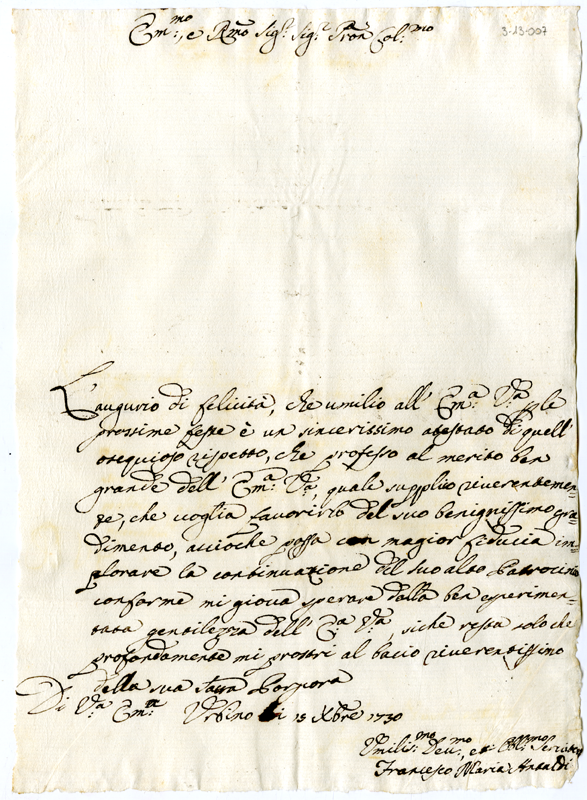 Em.mo, e Rmo Sig.r Sig.r Pron Col.mo
3-13-007
L'augurio di felicità, che umilio all' Em.a V.ra p le
prossime feste è un sincerissimo atestato di quell'
ossequioso rispetto, che professo al merito ben
grande dell' Em.a V.ra, quale supplio riverentemen
te, che voglia favorirlo del suo benignissimo gra
dimento, accioche possa con magior fiducia im
plorare la continuazione del suo alto Patrocinio
conforme mi giova sperare dalla ben esperimen
tata gentilezza dell' E.a V.ra, siche resta solo che
profondamente mi prostri al bacio riverentissimo
della sua sacra Porpora
Di V.ra Em.za Urbino li 15 Xbre 1730
Umilis.mo Dev.mo, ed Obl.mo Servitore
Francesco Maria Antaldi